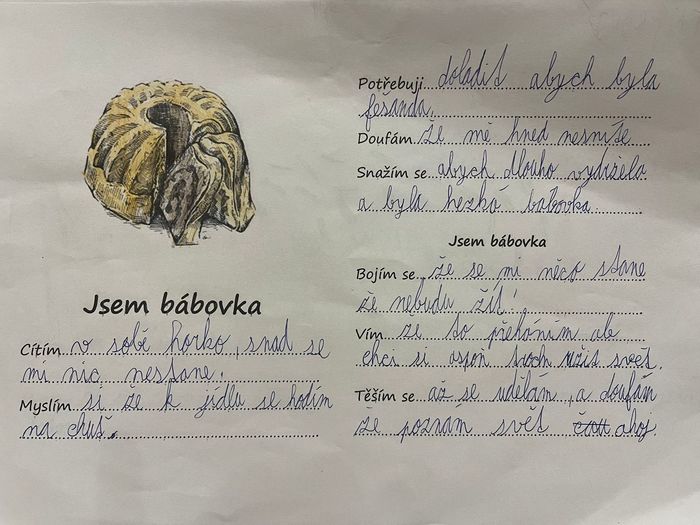 Jsem bábovka
Cítím v sobě horko, snad se
mi nic nestane.
Myslím si že k jídlu se hodím
na chuť.
Potřebuji doladit abych byla
fešanda.
Doufám že mě hned nesníte
Snažím se abych dlouho vydržela
a byla hezká bábovka.
Jsem bábovka
Bojím se že se mi něco stane
že nebudu žít!
Vím že to přeháním ale
chci si aspoň troch užít svět.
Těším se až se udělám, a doufám
že poznám svět ahoj.